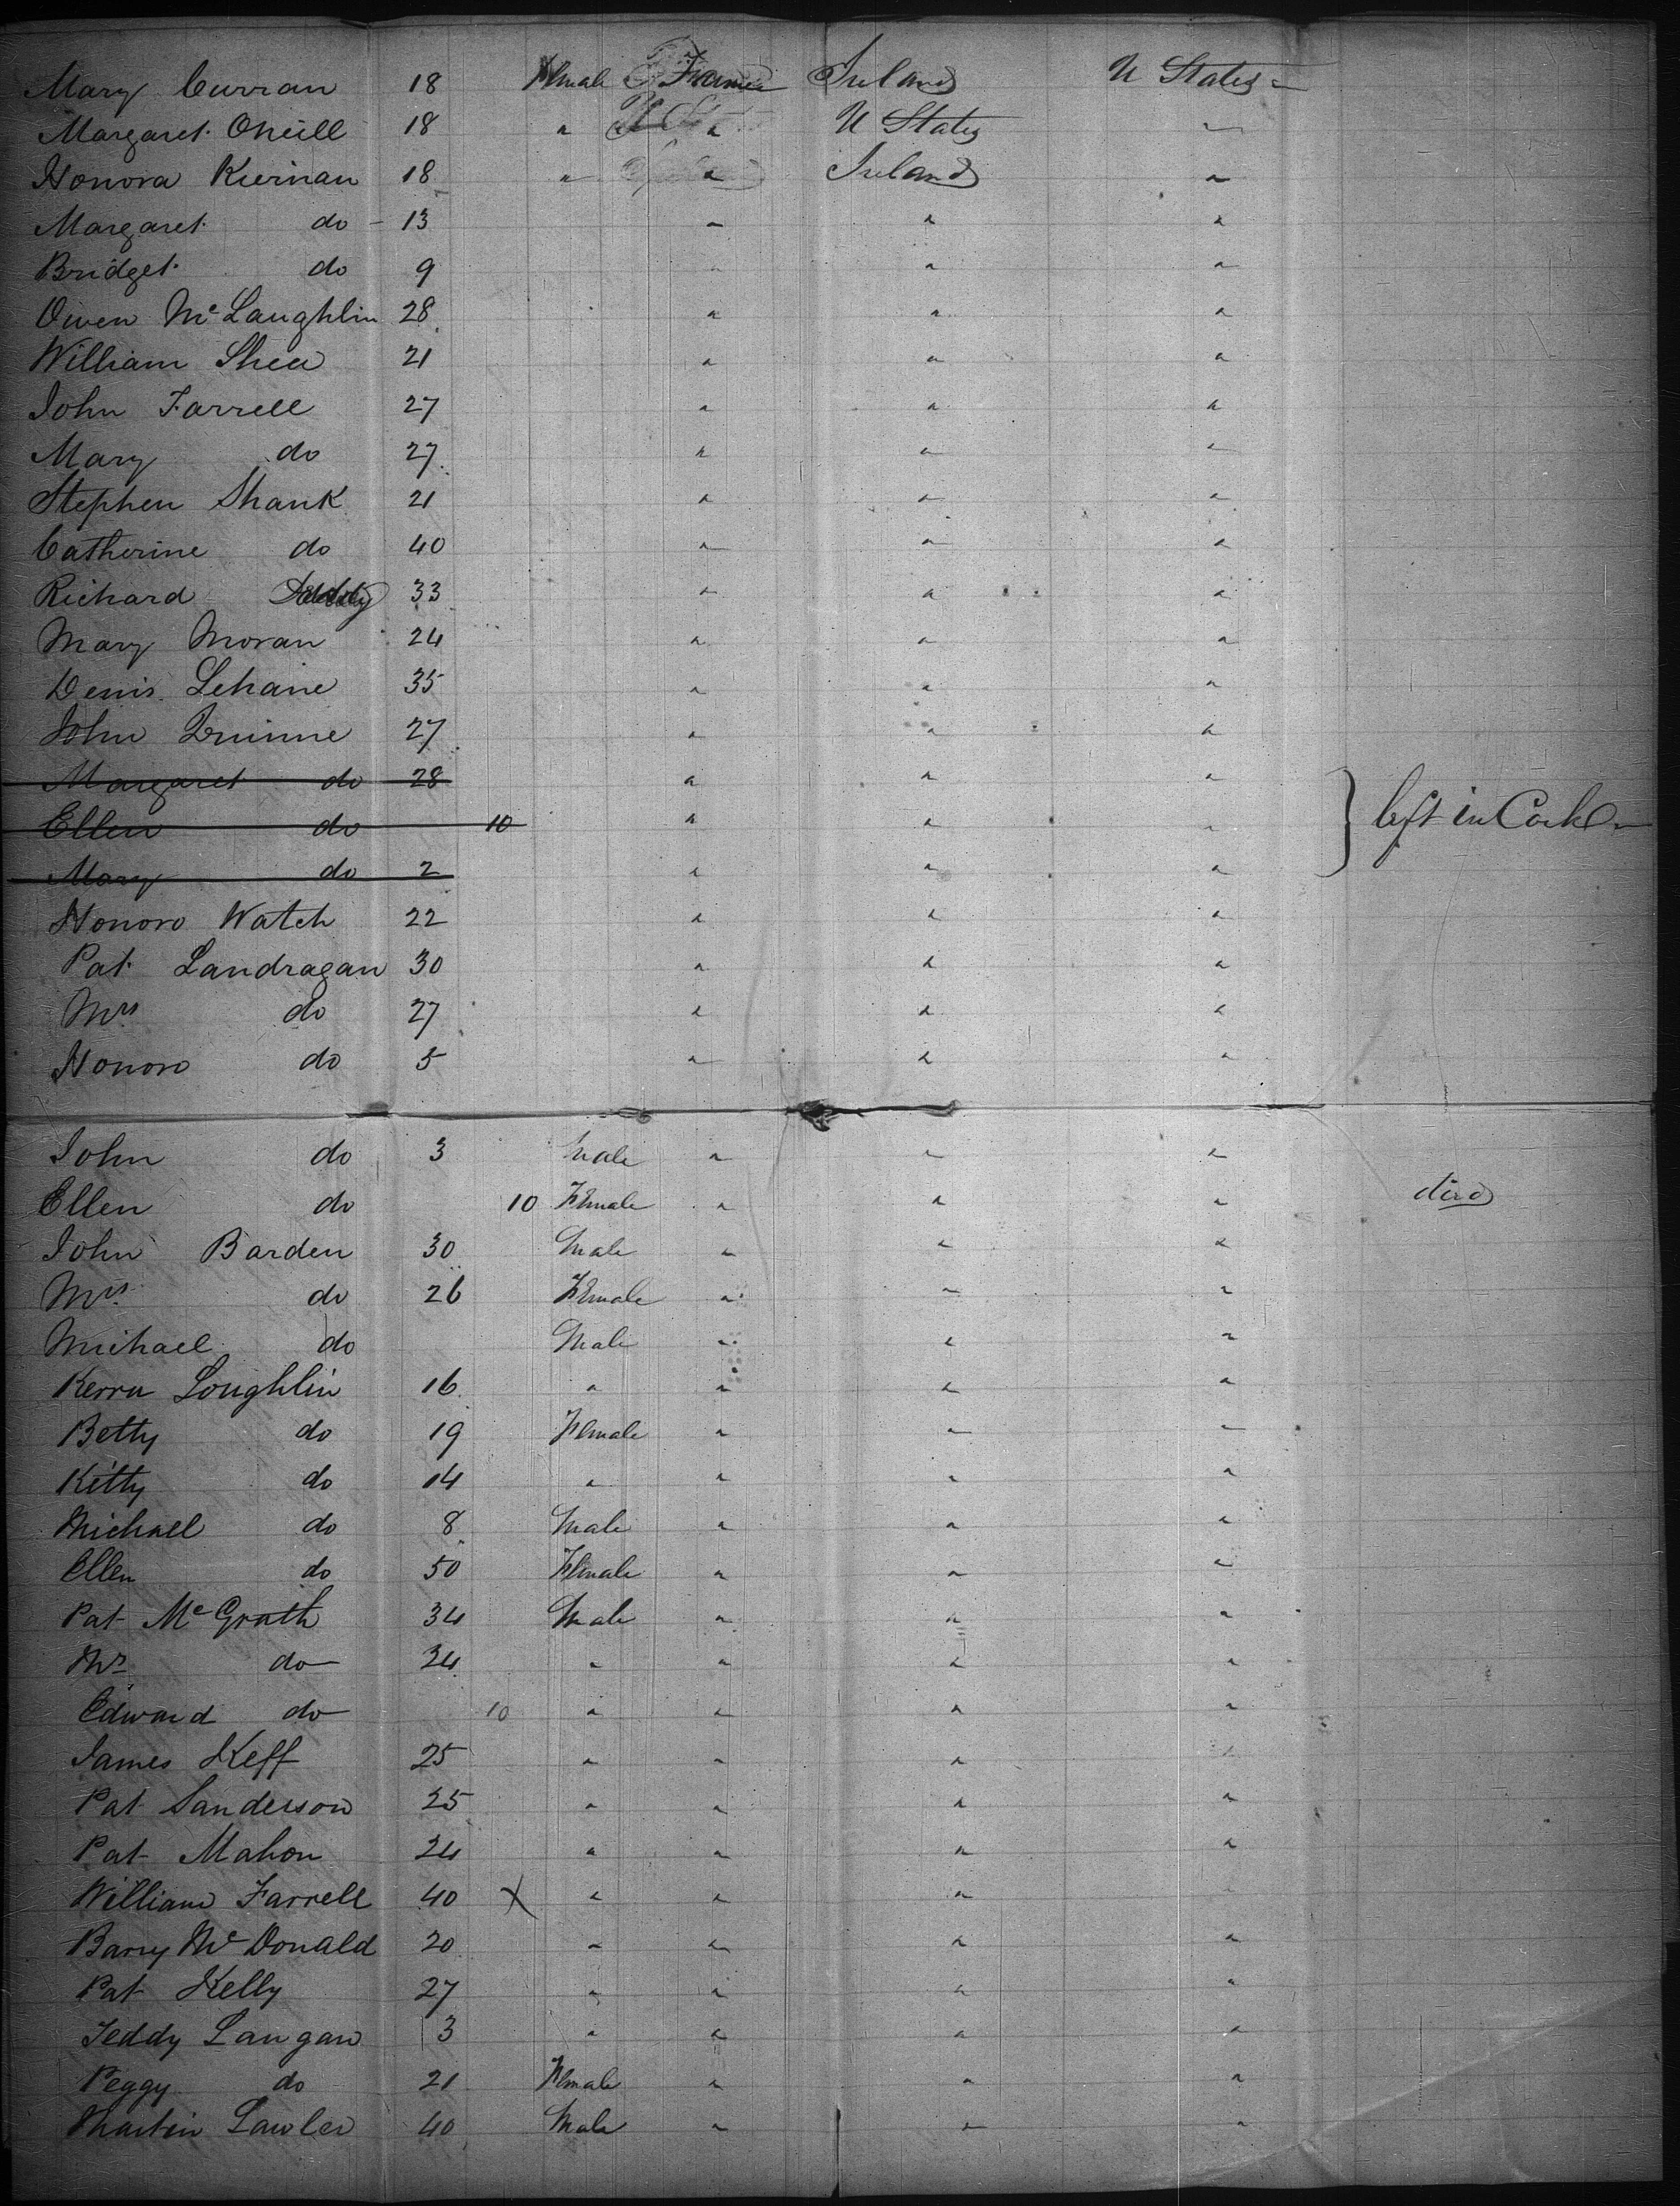 Mary Curran 18 Female Farmer Ireland U States "
Margaret Oneill 18 " " U States "
Honora Kiernan 18 " " Ireland "
Margaret do - 13 " " "
Bridget do 9 " " "
Owen McLaughlin 28 " " "
William Shea 21 " " "
John Farrell 27 " " "
Mary do 27 " " "
Stephen Shank 21 " " "
Catherine do 40 " " "
Richard 33 " " "
Mary Moran 24 " " "
Denis Lehane 35 " " "
John Quinne 27 " " "
Margaret do 28 " " "
Ellen do 10 " " " } left in Cork
Mary do 2 " " "
Honoro Watch 22 " " "
Pat Landragan 30 " " "
Mrs do 27 " " "
Honoro do 5 " " "
John do 3 Male " " "
Ellen do 10 Female " " " died
John Barden 30 Male " " "
Mrs do 26 Female " " "
Michael do Male " " "
Kerrn Loughlin 16 " " " "
Betty do 19 Female " " "
Kitty do 14 " " " "
Michael do 8 Male " " "
Ellen do 50 Female " " "
Pat McGrath 34 Male " " "
Mrs do 34 " " " "
Edward do 10 " " " "
James Keff 25 " " " "
Pat Sanderson 25 " " " "
Pat Mahon 24 " " " "
William Farrell 40 X " " " "
Barry McDonald 20 " " " "
Pat Kelly 27 " " " "
Teddy Langan 13 " " " "
Peggy do 21 Female " " "
Martin Lawler 40 Male " " "